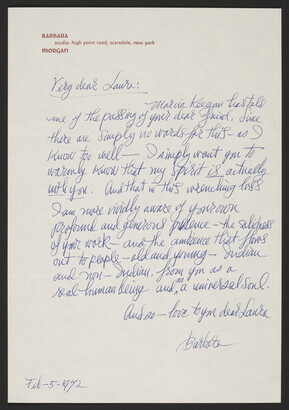 BARBARA
studio: high point road, scarsdale, new york
MORGAN
Very dear Laura:
Marcia Keegan has told
me of the passing of your dear friend. Since
there are simply no words for this – as I
know too well — I simply want you to
warmly know that my spirit is actually
with you. And that in this wrenching loss
I am more vividly aware of your own
profound and generous presence – the
of your work – and the ambience that flows
out to people – old and young – Indian
and non-Indian, from you as a
real human being and as a universal soul.
And so – love to you dear Laura
Barbara
Feb-5-1972